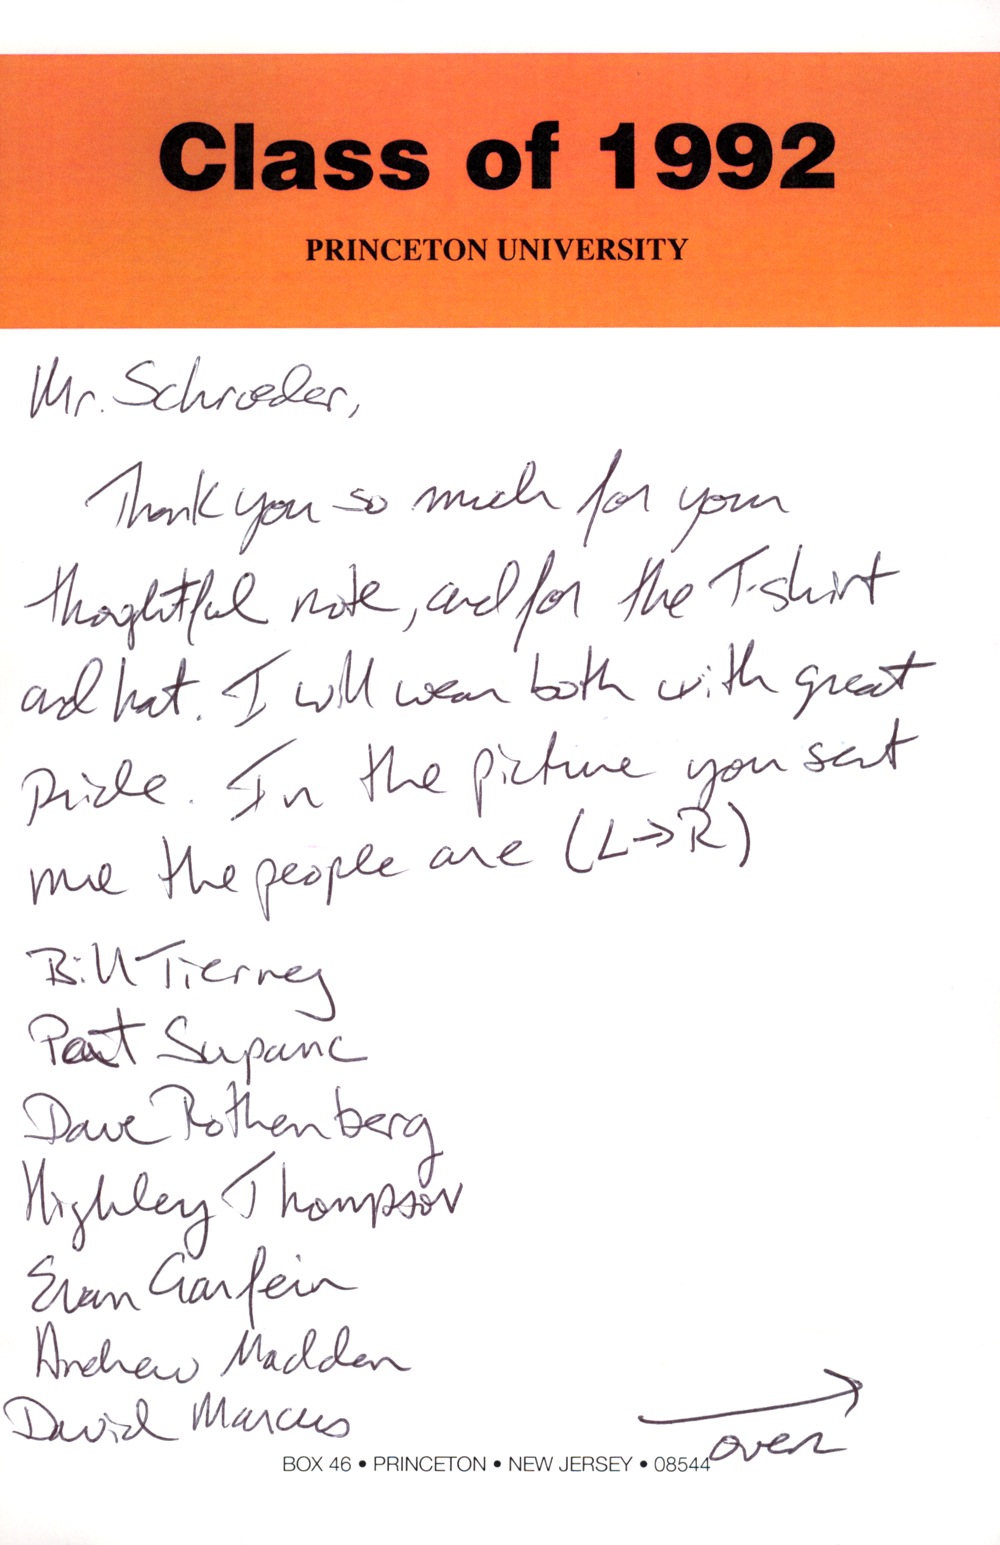 Class of 1992
PRINCETON UNIVERSITY
Mr. Schroeder,
Thank you so much for your
thoghtful note, and for the T-shirt
and hat. I will wear both with great
Pride. In the picture you sent
me the people are (L→R)
Bill Tierney
Pat Supanc
Dave Rothenberg
Highley Thompson
Evan Garfein
Andrew Madden
David Marcus
→
over
BOX 46 • PRINCETON • NEW JERSEY • 08544